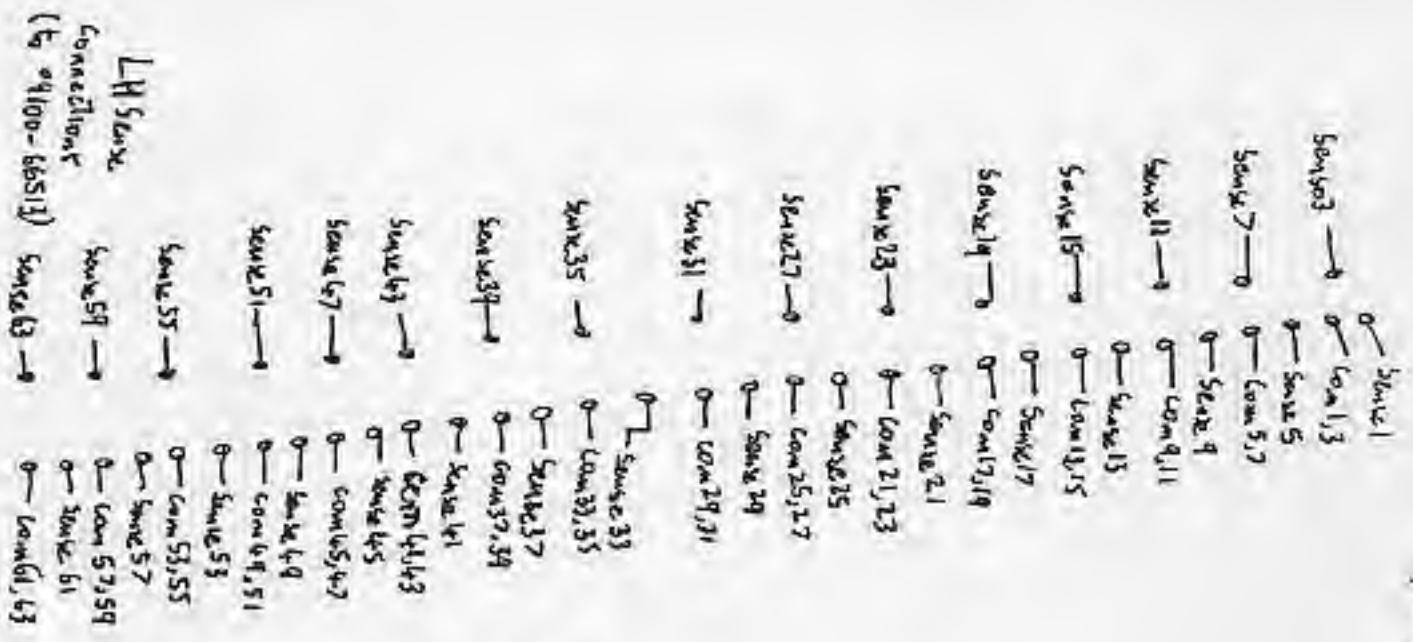 Sense1
Sense3 Com1,3
Sense5
Sense7 Com5,7
Sense9
Sense11 Com9,11
Sense13
Sense15 Com13,15
Sense17
Sense19 Com17,19
Sense21
Sense23 Com21,23
Sense25
Sense27 Com25,27
Sense29
Sense31 Com29,31
Sense33
Sense35 Com33,35
Sense37
Sense39 Com37,39
Sense41
Sense43 Com41,43
Sense45
Sense47 Com45,47
Sense49
Sense51 Com49,51
Sense53
Sense55 Com53,55
Sense57
Sense59 Com57,59
Sense61
Sense63 Com61,63
LH Sense
Connections
(to 09100-66513)